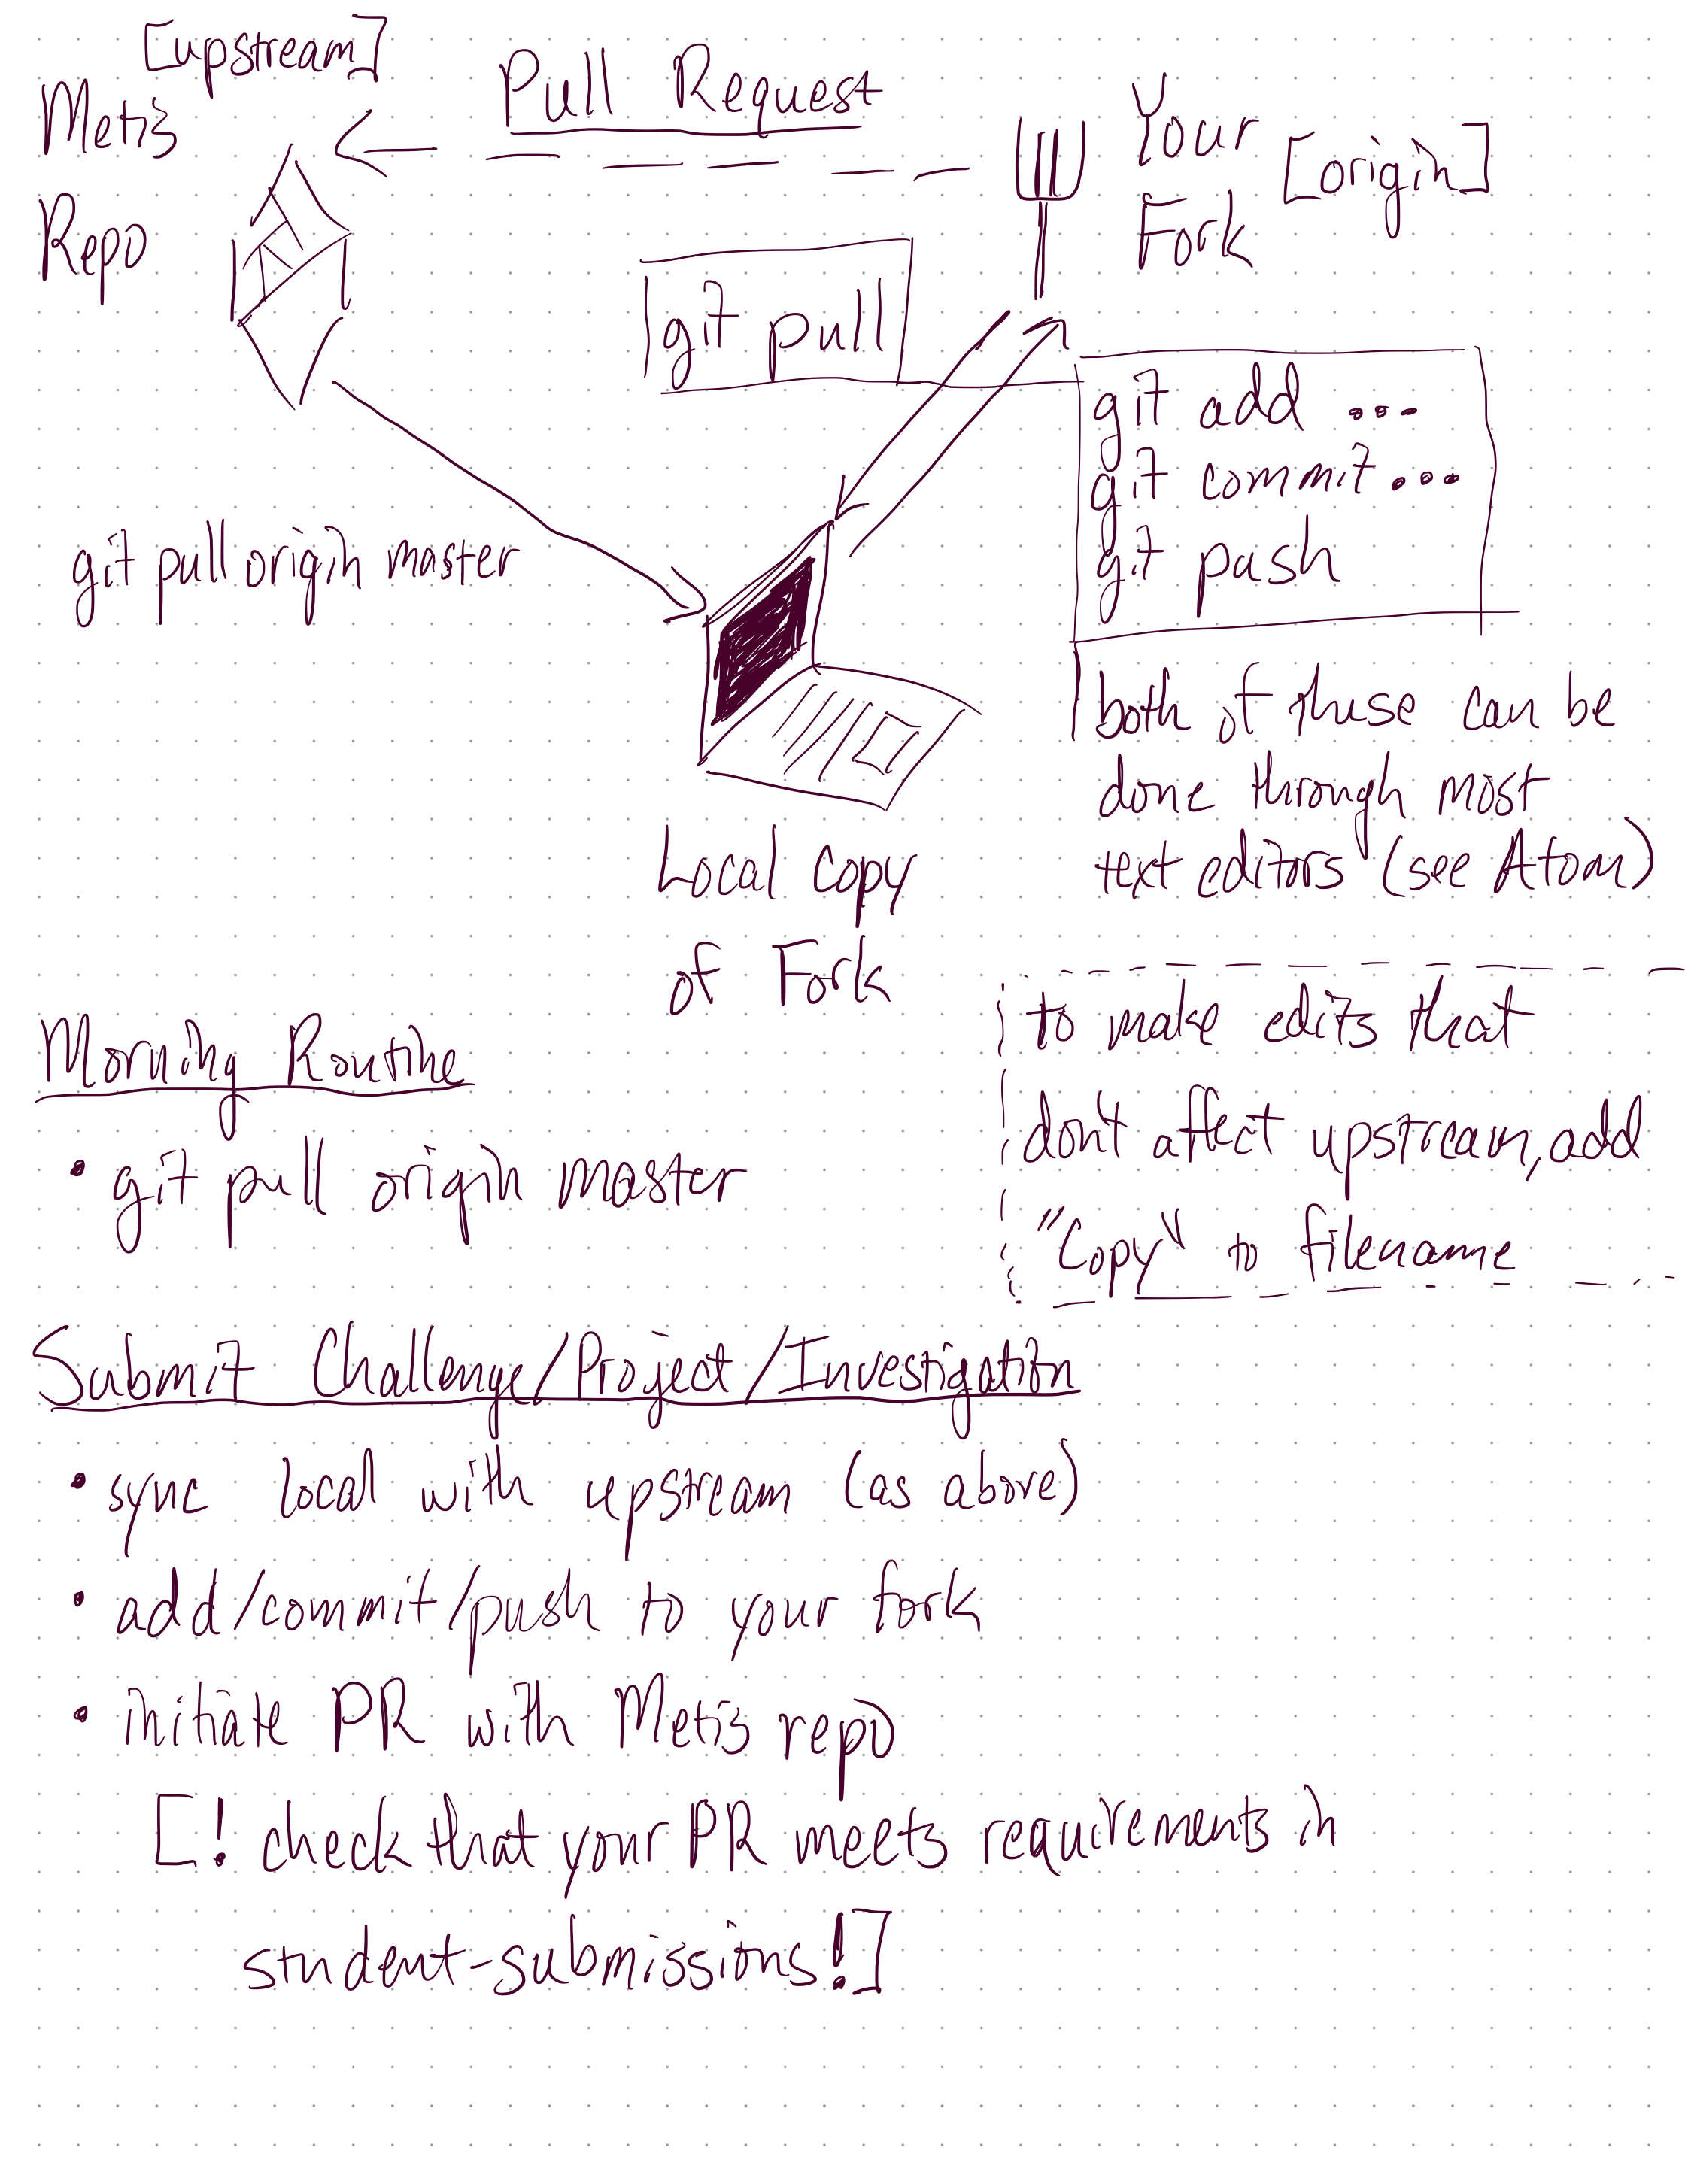 [upstream]
Metis
Repo
Pull Request
Your
Fork
[origin]
git pull
git add ...
git commit...
git push
git pull origin master
both of these can be
done through most
text editors (see Atom)
Local copy
of Fork
to make edits that
don't affect upstream, add
"Copy" to filename
Morning Routine
• git pull origin master
Submit Challenge/Project/Investigation
• sync local with upstream (as above)
• add/commit/push to your fork
• initiate PR with Metis repo
[! check that your PR meets requirements in
student-submissions!]